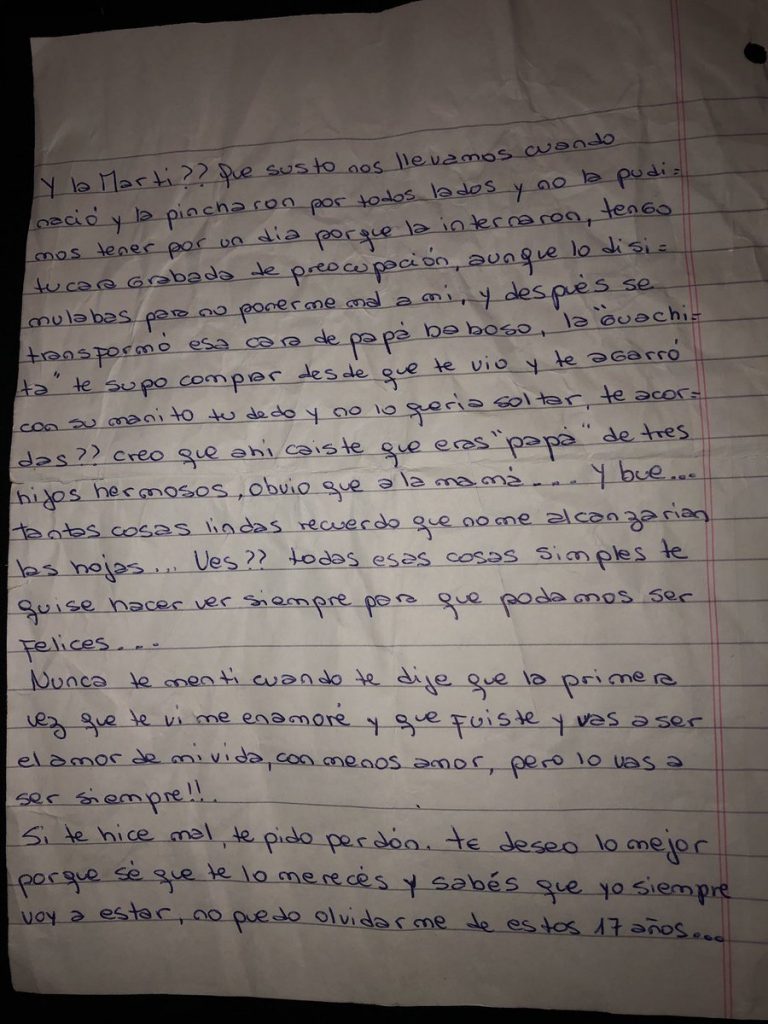 Y la Marti?? Que susto nos llevamos cuando
nació y la pincharon por todos lados y no la pudi=
mos tener por un dia porque la internaron, tengo
tu cara grabada de preocupación, aunque lo disi=
mulabas para no ponerme mal a mi, y después se
transformó esa cara de papá baboso, la "guachi=
ta" te supo comprar desde que te vio y te agarró
con su manito tu dedo y no lo queria soltar, te acor=
das?? creo que ahi caiste que eras "papá" de tres
hijos hermosos, obvio que a la mamá.... Y bue...
tantas cosas lindas recuerdo que no me alcanzarian
las hojas... Ves?? todas esas cosas simples te
quise hacer ver siempre para que podamos ser
felices....
Nunca te menti cuando te dije que la primera
vez que te vi me enamoré y que fuiste y vas a ser
el amor de mi vida, con menos amor, pero lo vas a
ser siempre!!.
Si te hice mal, te pido perdón. te deseo lo mejor
porque sé que te lo merecés y sabés que yo siempre
voy a estar, no puedo olvidarme de estos 17 años...